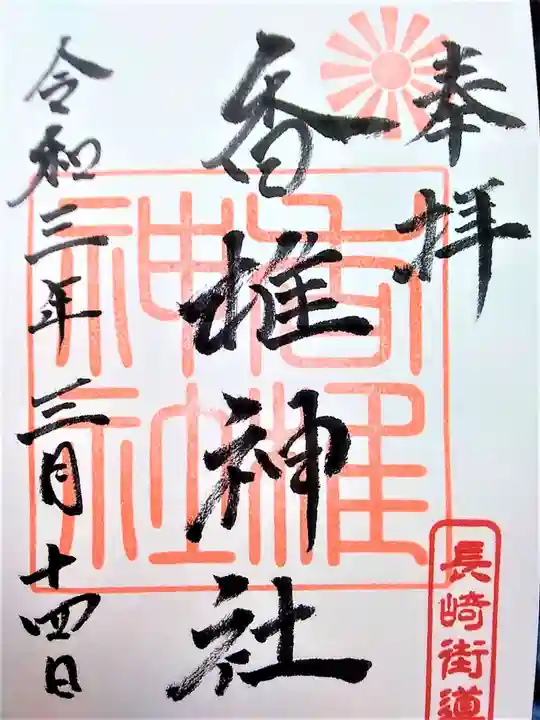 奉拝
香椎神社
令和三年三月十四日
香椎神社
長崎街道